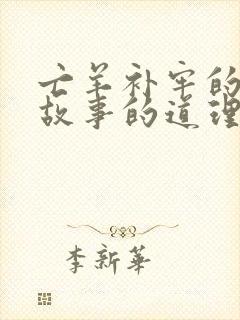 亡羊补牢的
故事的道理
李新华